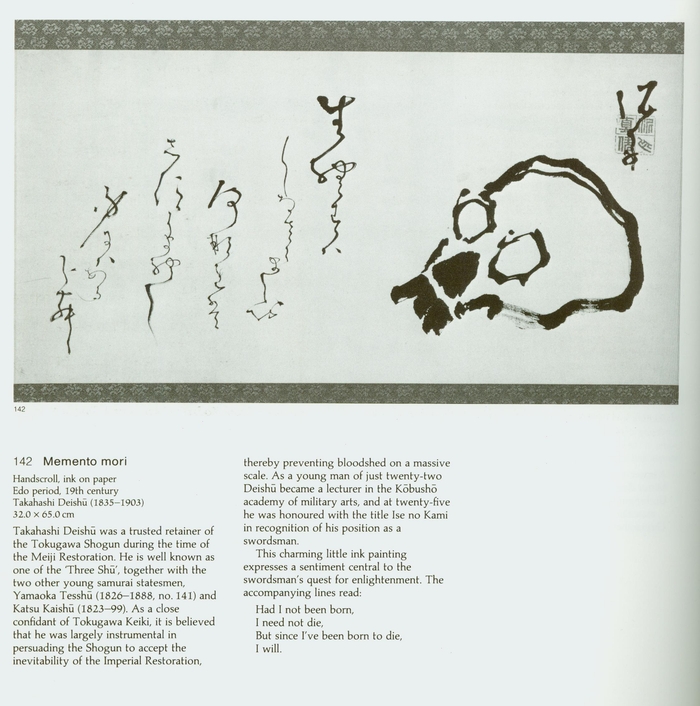 泥舟
142
142 Memento mori
Handscroll, ink on paper
Edo period, 19th century
Takahashi Deishū (1835–1903)
32.0 × 65.0 cm
Takahashi Deishū was a trusted retainer of
the Tokugawa Shogun during the time of
the Meiji Restoration. He is well known as
one of the ‘Three Shū’, together with the
two other young samurai statesmen,
Yamaoka Tesshū (1826–1888, no. 141) and
Katsu Kaishū (1823–99). As a close
confidant of Tokugawa Keiki, it is believed
that he was largely instrumental in
persuading the Shogun to accept the
inevitability of the Imperial Restoration,
thereby preventing bloodshed on a massive
scale. As a young man of just twenty-two
Deishū became a lecturer in the Kōbushō
academy of military arts, and at twenty-five
he was honoured with the title Ise no Kami
in recognition of his position as a
swordsman.
This charming little ink painting
expresses a sentiment central to the
swordsman's quest for enlightenment. The
accompanying lines read:
Had I not been born,
I need not die,
But since I've been born to die,
I will.